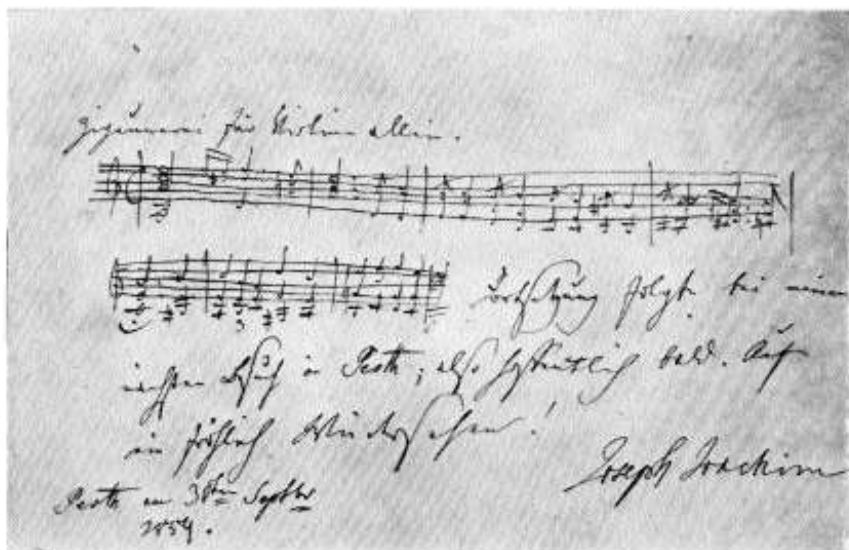 Zigeunerei für Violine allein.
Fortsetzung folgt bei meinem
nächsten Besuch in Pesth; also hoffentlich bald. Auf
ein fröhlich Wiedersehen!
Joseph Joachim
Pesth am Septber